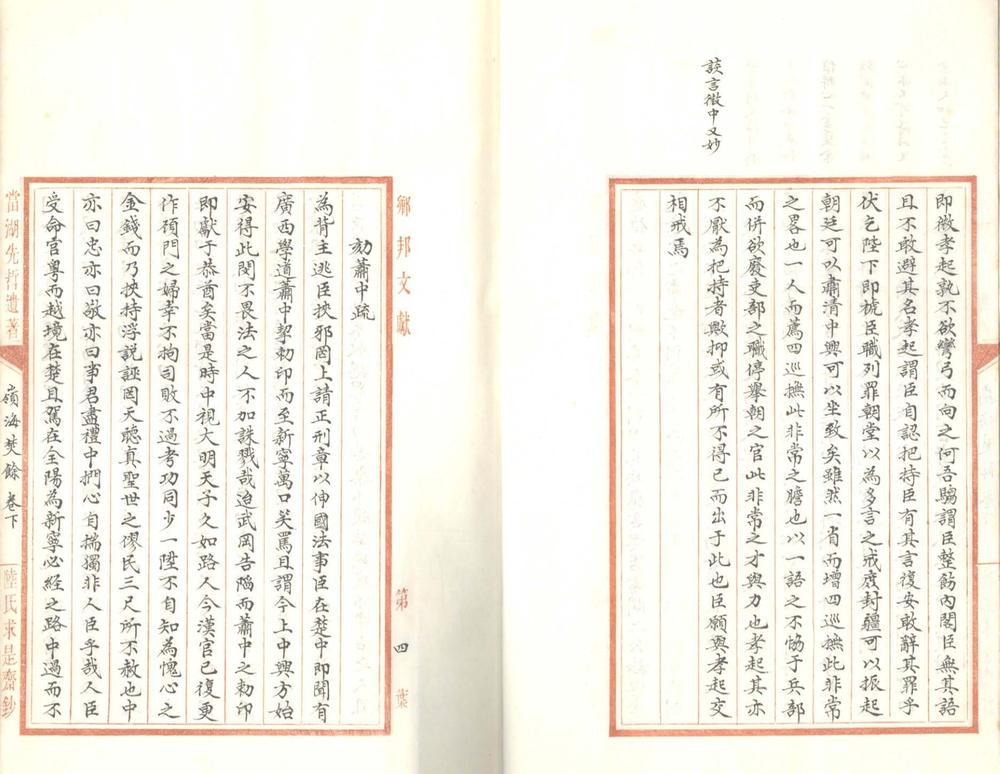 談言微中又妙
即微孝起孰不欲彎弓而向之何吾騶謂臣整飭內閣臣無其語
且不敢避其名孝起謂臣自認把持臣有其言復安敢辭其罪乎
伏乞陛下即褫臣職列罪朝堂以為多言之戒庶封疆可以振起
朝廷可以肅清中興可以坐致矣雖然一省而增四巡撫此非常
之畧也一人而薦四巡撫此非常之膽也以一語之不恊于兵部
而併欲廢吏部之職停舉朝之官此非常之才與力也孝起其亦
不厭為把持者歟抑或有所不得已而出于此也臣願與孝起交
相戒焉
鄉邦文獻
第四葉
劾蕭中疏
為背主逃臣挾邪罔上請正刑章以伸國法事臣在楚中即聞有
廣西學道蕭中挈勅印而至新寧萬口笑罵且謂今上中興方始
安得此閔不畏法之人不加誅戮哉迨武岡告陷而蕭中之勅印
即獻于恭酋矣當是時中視大明天子久如路人今漢官已復更
作碩門之婦幸不拘司敗不過考功同少一陞不自知為愧心之
金錢而乃挾持浮說誣罔天聽真聖世之僇民三尺所不赦也中
亦曰忠亦曰敬亦曰事君盡禮中捫心自揣獨非人臣乎哉人臣
受命官粵而越境在楚且駕在全陽為新寧必經之路中過而不
當湖先哲遺著
嶺海焚餘 卷下
陸氏求是齋鈔